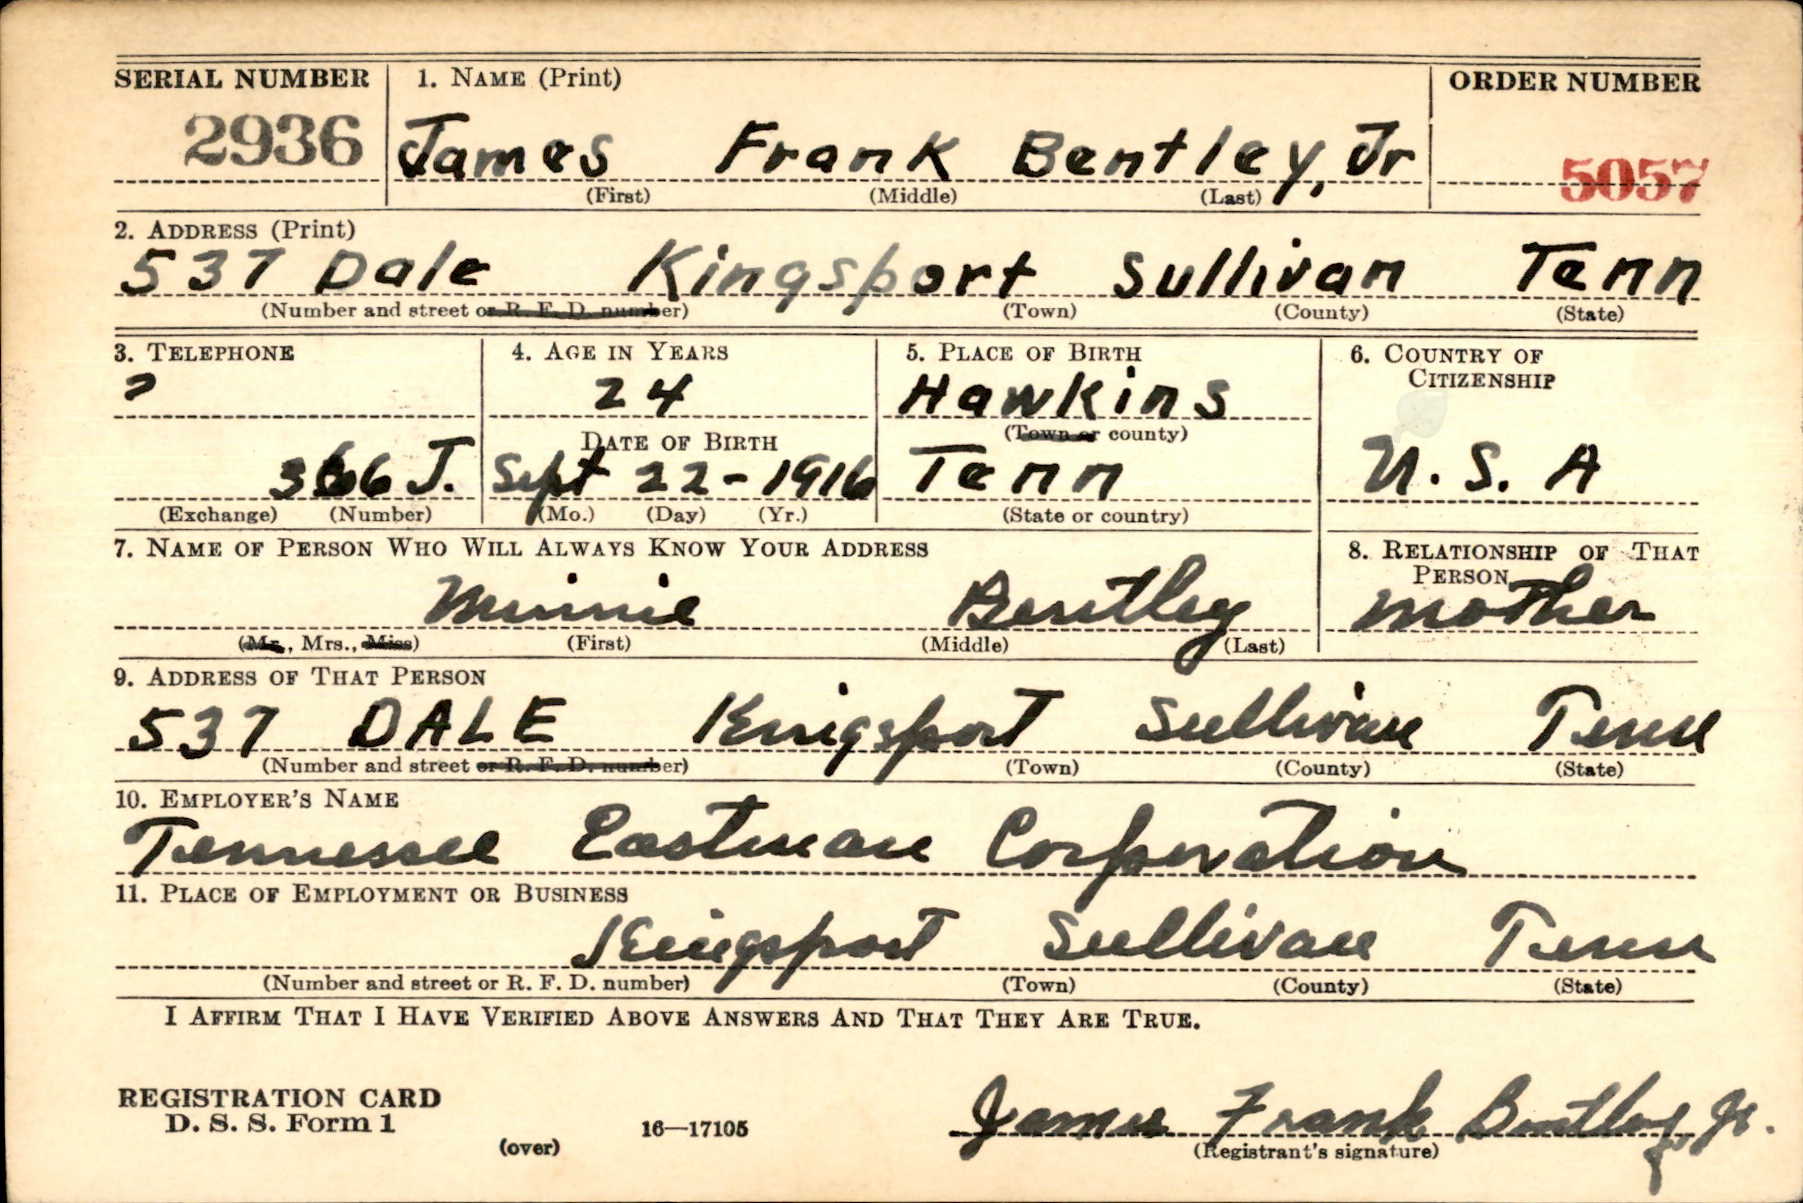 SERIAL NUMBER 1. NAME (Print) ORDER NUMBER
2936 James Frank Bentley, Jr 5057
(First) (Middle) (Last)
2. ADDRESS (Print)
537 Dale Kingsport Sullivan Tenn
(Number and street or R. F. D. number) (Town) (County) (State)
3. TELEPHONE 4. AGE IN YEARS 5. PLACE OF BIRTH 6. COUNTRY OF
CITIZENSHIP
24 Hawkins
DATE OF BIRTH (Town or county)
366 J. Sept 22-1916 Tenn U.S.A
(Exchange) (Number) (Mo.) (Day) (Yr.) (State or country)
7. NAME OF PERSON WHO WILL ALWAYS KNOW YOUR ADDRESS 8. RELATIONSHIP OF THAT
PERSON
Minnie Bentley mother
(Mr., Mrs., Miss) (First) (Middle) (Last)
9. ADDRESS OF THAT PERSON
537 DALE Kingsport Sullivan Tenn
(Number and street or R. F. D. number) (Town) (County) (State)
10. EMPLOYER'S NAME
Tennessee Eastman Corporation
11. PLACE OF EMPLOYMENT OR BUSINESS
Kingsport Sullivan Tenn
(Number and street or R. F. D. number) (Town) (County) (State)
I AFFIRM THAT I HAVE VERIFIED ABOVE ANSWERS AND THAT THEY ARE TRUE.
REGISTRATION CARD
D. S. S. Form 1
(over) 16—17105
James Frank Bentley, Jr.
(Registrant's signature)